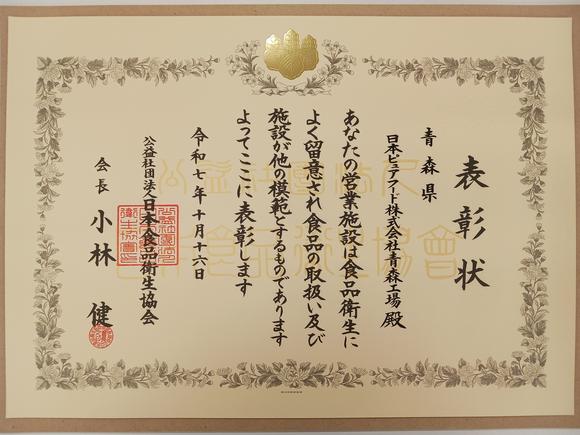 表彰状
青森県
日本ピュアフード株式会社青森工場殿
あなたの営業施設は食品衛生に
よく留意され食品の取扱い及び
施設が他の模範とするものであります
よってここに表彰します
令和七年十月十六日
公益社団法人日本食品衛生協会
会長 小林 健